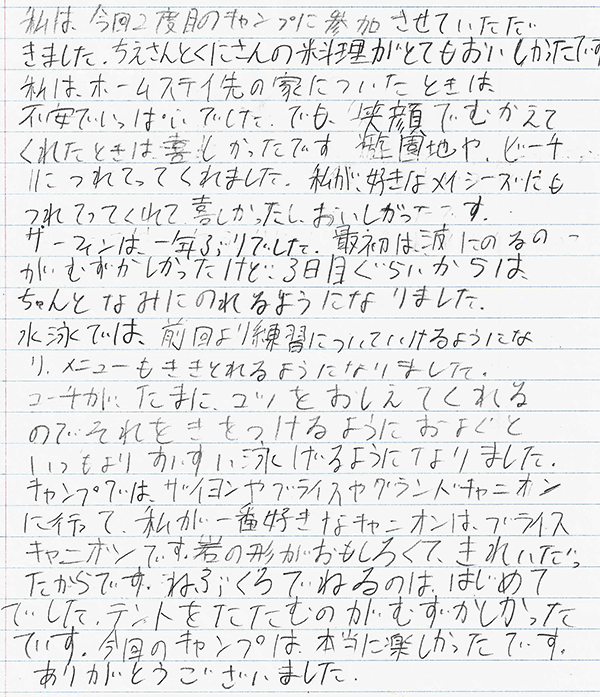 私は、今回2度目のキャンプに参加させていただ
きました。ちえさんとくにさんの料理がとてもおいしかったです
私は、ホームステイ先の家についたときは
不安でいっぱいでした。でも、笑顔でむかえて
くれたときは喜しかったです 遊園地や、ビーチ
につれてってくれました。私が、好きなメイシーズにも
つれてってくれて喜しかったし、おいしかったです。
サーフィンは、一年ぶりでした。最初は、波にのるの
がむずかしかったけど、3日目ぐらいからは、
ちゃんとなみにのれるようになりました。
水泳では、前回より練習についていけるようにな
り、メニューもききとれるようになりました。
コーチが、たまに、コツをおしえてくれる
のでそれをきをつけるようにおよぐと
いつもよりすいすい泳げるようになりました。
キャンプでは、ザイオンやブライスやグランドキャニオン
に行って、私が一番好きなキャニオンは、ブライス
キャニオンです。岩の形がおもしろくて、きれいだっ
たからです。ねぶくろでねるのは、はじめて
でした。テントをたたむのがむずかしかった
です。今回のキャンプは、本当に楽しかったです。
ありがとうございました。